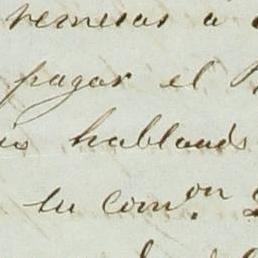 remesas a
pagar el
hablando
tu com.on